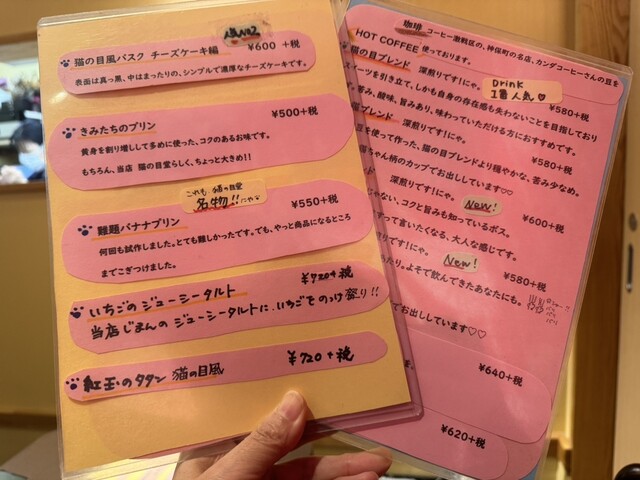 人気No2
猫の目風バスク チーズケーキ編 ¥600 +税
表面は真っ黒、中はまったりの、シンプルで濃厚なチーズケーキです。
きみたちのプリン ¥500+税
黄身を割り増しして多めに使った、コクのあるお味です。
もちろん、当店 猫の目堂らしく、ちょっと大きめ!!
これも 猫の目堂
名物!!にゃ
難題バナナプリン ¥550+税
何回も試作しました。とても難しかったです。でも、やっと商品になるところ
までこぎつけました。
いちごのジューシータルト ¥720+税
当店じまんの ジューシータルトに、いちごをのっけ祭り!!
紅玉のタタン 猫の目風 ¥720+税
珈琲 コーヒー激戦区の、神保町の名店、カンダコーヒーさんの豆を
HOT COFFEE 使っております。
猫の目ブレンド 深煎りです!にゃ。 ¥580+税
Drink
1番人気♡
スイーツを引き立て、しかも自身の存在感も失わないことを目指しており
苦み、酸味、旨みあり、味わっていただける方におすすめです。
ブレンド 深煎りです!にゃ。 ¥580+税
豆を使って作った、猫の目ブレンドより穏やかな、苦み少なめ。
ちゃん柄のカップでお出ししています♡♡
深煎りです!にゃ。 New! ¥600+税
じゃない、コクと旨みも知っているボス。
すって言いたくなる、大人な感じです。
煎りです!にゃ。 New! ¥580+税
ったり。よそで飲んできたあなたにも。
でお出ししています♡♡
¥640+税
¥620+税